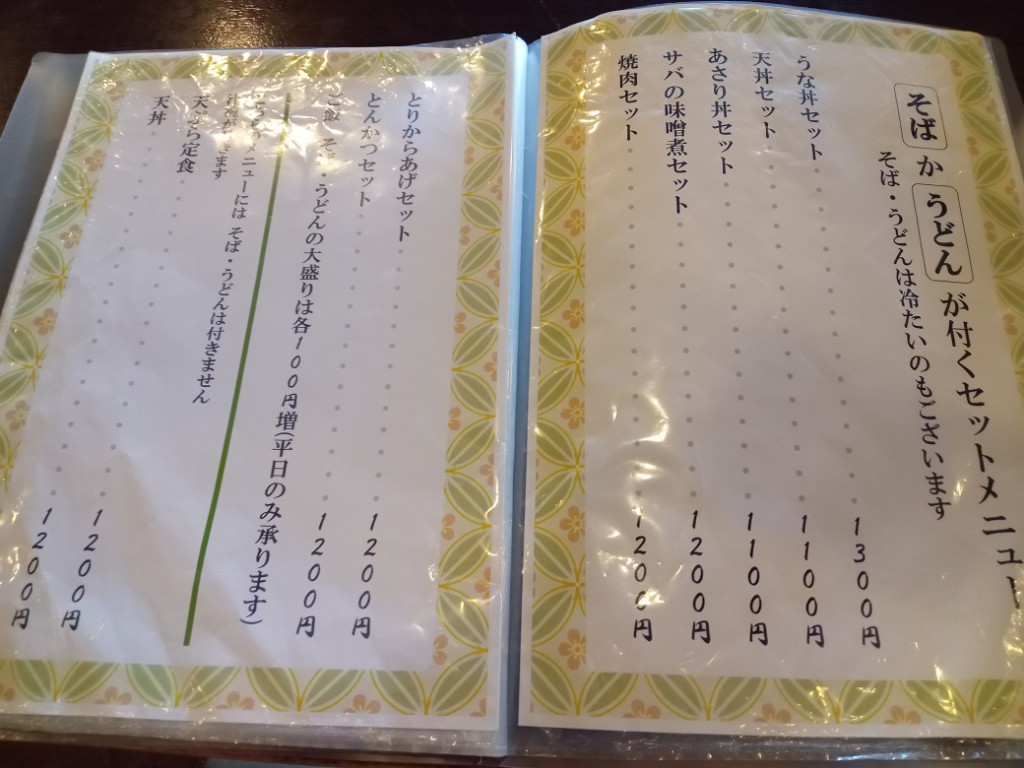 そば か うどん が付くセットメニュー
そば・うどんは冷たいのもございます
うな丼セット 1300円
天丼セット 1100円
あさり丼セット 1100円
サバの味噌煮セット 1200円
焼肉セット 1200円
とりからあげセット 1200円
とんかつセット 1200円
ご飯・そば・うどんの大盛りは各100円増(平日のみ承ります)
こちらのメニューには そば・うどんは付きません
きます
天ぷら定食 1200円
天丼 1200円